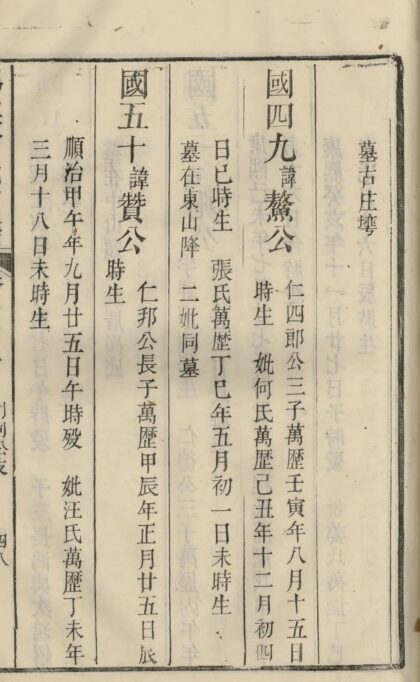 墓古庄塆
國四九諱鰲公
仁四郎公三子萬歷壬寅年八月十五日
時生 妣何氏萬歷己丑年十二月初四
日巳時生 張氏萬歷丁巳年五月初一日未時生
墓在東山降 二妣同墓
國五十諱贊公
仁邦公長子萬歷甲辰年正月廿五日辰
時生
順治甲午年九月廿五日午時歿 妣汪氏萬歷丁未年
三月十八日未時生